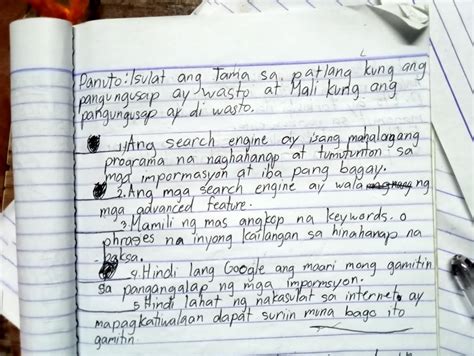 Panuto: Isulat ang Tama sa patlang kung ang
pangungusap ay wasto at Mali kung ang
pangungusap ay di wasto.
1) Ang search engine ay isang mahalagang
programa na naghahanap at tumutunton sa
mga impormasyon at iba pang bagay.
2. Ang mga search engine ay wala ng
mga advanced feature.
3. Mamili ng mas angkop na keywords o
phrases na inyong kailangan sa hinahanap na
paksa.
4. Hindi lang Google ang maari mong gamitin
sa pangangalap ng mga impormsyon.
5. Hindi lahat ng nakasulat sa internet ay
mapagkatiwalaan dapat suriin muna bago ito
gamitin.